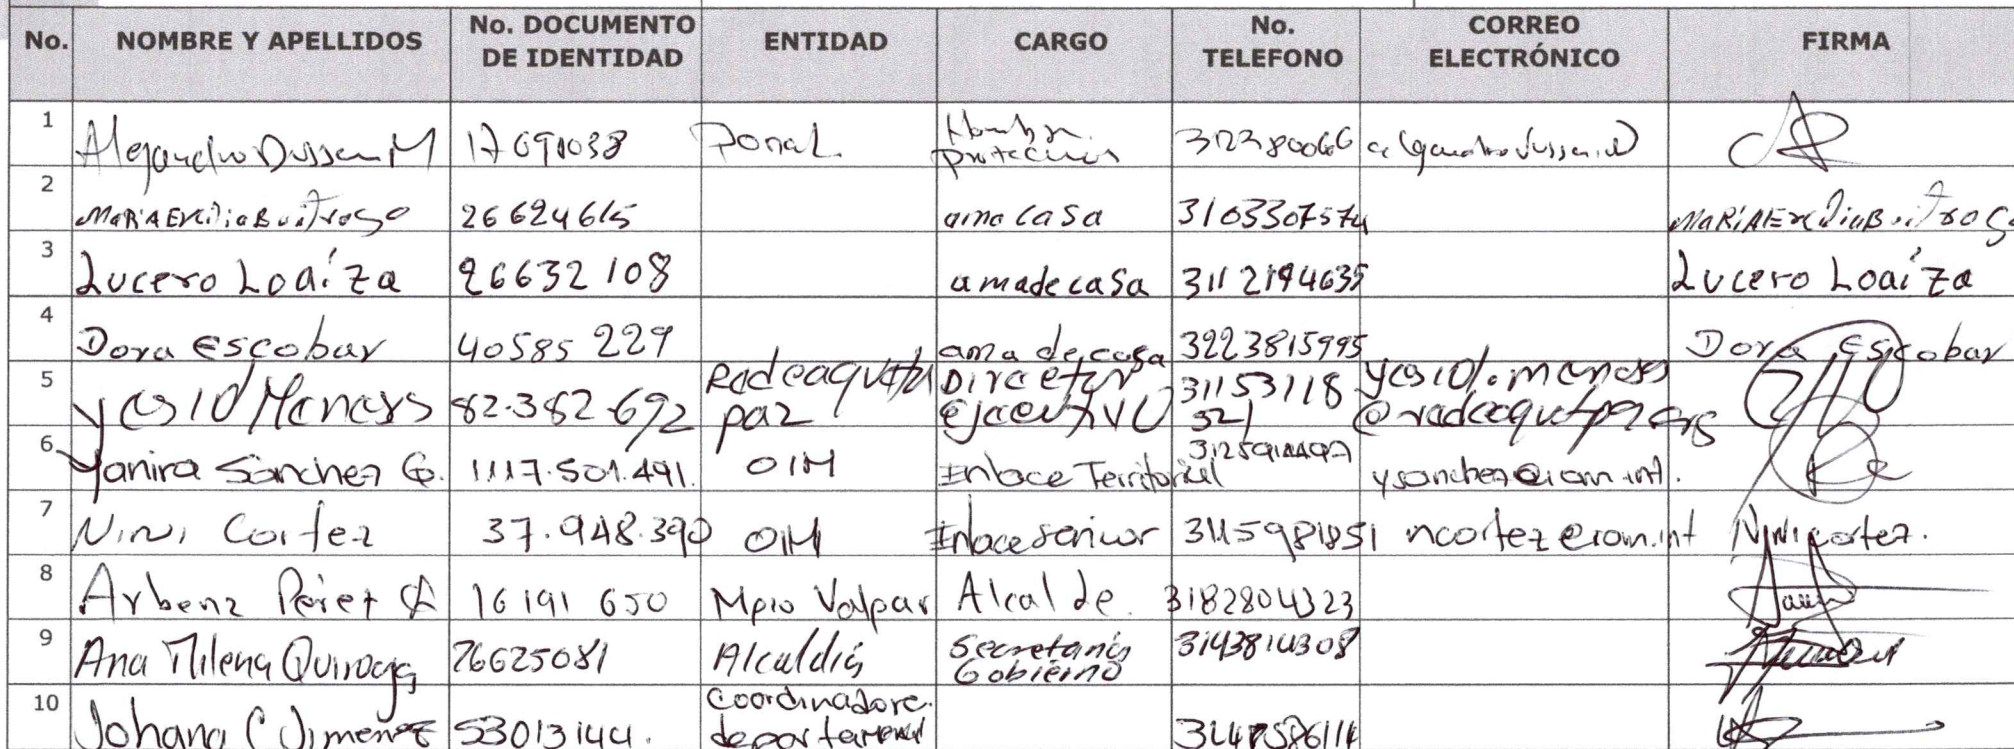 No. NOMBRE Y APELLIDOS No. DOCUMENTO DE IDENTIDAD ENTIDAD CARGO No. TELEFONO CORREO ELECTRÓNICO FIRMA
1 Alejandro Dussan M 17691038 Ponal. Hombre protección 3123800666
2 MARIA ERCilia Buitrago 26624615 ama casa 3103307574 MARIA ERCilia Buitrago
3 Lucero Loaíza 26632108 ama de casa 3112194635 Lucero Loaíza
4 Dora Escobar 40585 229 ama de casa 3223815995 Dora Escobar
5 Yesid Meneses 82.382.692 Redeaquitu paz Director Ejecutivo 31153118 321 yesid.meneses
6 Yanira Sánchez G. 1.117.501.491. OIM Enlace Territorial ysanchez@iom.int.
7 Nini Cortez 37.948.390 OIM Enlace senior 3115981851 ncortez@iom.int Nini Cortez.
8 Arbenz Pérez 16191 650 Mpio Valpar Alcalde. 3182804323
9 Ana Milena Quiroga 26625081 Alcaldía Secretaria Gobierno 3143814308
10 Johana C Jimenez 53013144. Coordinadora departamental